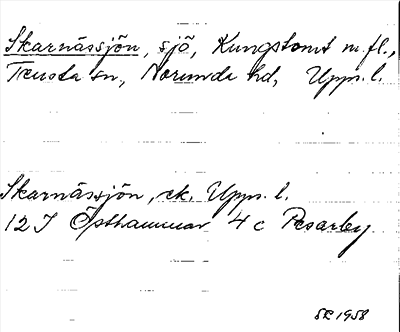 Skarnässjön, sjö, Kungstomt m.fl.,
Tensta sn, Norunda hd, Upps. l.
Skarnässjön, ek. Upps. l.
12 I Östhammar 4 c Pesarby
SE 1958